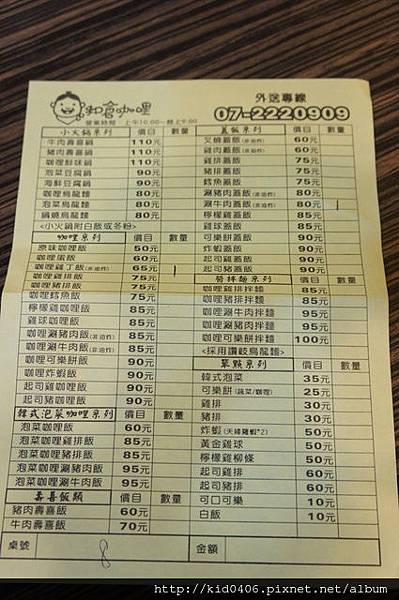 和倉咖哩
營業時間：上午10:00~晚上9:00
外送專線
07-2220909
小火鍋系列 價目 數量
牛肉壽喜鍋 110元
豬肉壽喜鍋 110元
咖哩鮮味鍋 110元
泡菜豆腐鍋 90元
海鮮豆腐鍋 90元
咖哩烏龍麵 80元
泡菜烏龍麵 80元
鍋燒烏龍麵 80元
<小火鍋附白飯或冬粉>
咖哩系列 價目 數量
原味咖哩飯 50元
咖哩蛋飯 60元
咖哩雞丁飯(非油炸) 65元
咖哩雞排飯 75元
咖哩豬排飯 75元
咖哩鱈魚飯 75元
檸檬雞咖哩飯 85元
雞球咖哩飯 85元
咖哩涮豬肉飯(非油炸) 85元
咖哩涮牛肉飯(非油炸) 85元
咖哩可樂餅飯 90元
咖哩炸蝦飯 90元
起司雞咖哩飯 90元
起司豬咖哩飯 90元
韓式泡菜咖哩系列 價目 數量
泡菜咖哩飯 60元
泡菜咖哩雞排飯 85元
泡菜咖哩豬排飯 85元
泡菜咖哩涮豬肉飯 95元
泡菜咖哩涮牛肉飯 95元
壽喜飯類 價目 數量
豬肉壽喜飯 60元
牛肉壽喜飯 70元
蓋飯系列 價目 數量
叉燒蓋飯(非油炸) 60元
雞肉蓋飯(非油炸) 60元
雞排蓋飯 75元
豬排蓋飯 75元
鱈魚蓋飯 75元
涮豬肉蓋飯(非油炸) 80元
涮牛肉蓋飯(非油炸) 80元
檸檬雞蓋飯 85元
雞球蓋飯 85元
可樂餅蓋飯 90元
炸蝦蓋飯 90元
起司雞蓋飯 90元
起司豬蓋飯 90元
價目 數量
咖哩雞排拌麵 85元
咖哩豬排拌麵 85元
咖哩雞球拌麵 95元
咖哩涮豬肉拌麵 95元
咖哩可樂餅拌麵 100元
<採用讚岐烏龍麵>
單點系列 價目 數量
韓式泡菜 35元
可樂餅(蔬菜/咖哩) 25元
雞排 30元
豬排 30元
炸蝦(天婦羅蝦*2) 50元
黃金雞球 50元
檸檬雞柳條 50元
起司雞排 60元
起司豬排 60元
可口可樂 10元
白飯 10元
桌號 8 金額
http://kid0406.pixnet.net/album